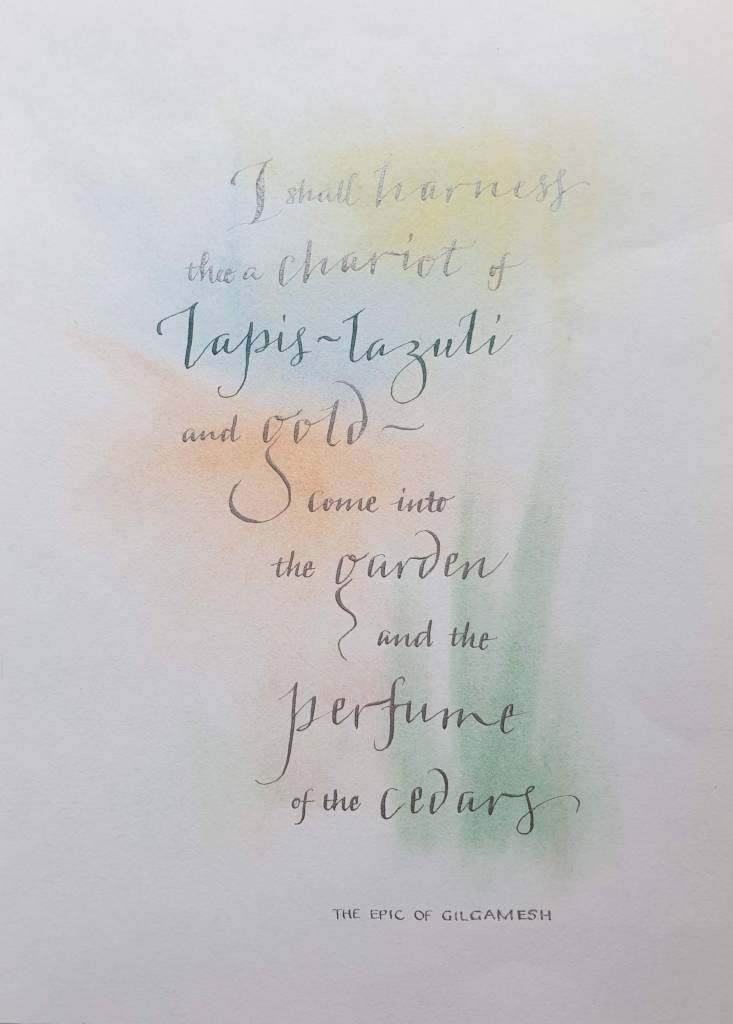 I shall harness
thee a chariot of
lapis~lazuli
and gold~
come into
the garden
and the
perfume
of the cedars
THE EPIC OF GILGAMESH